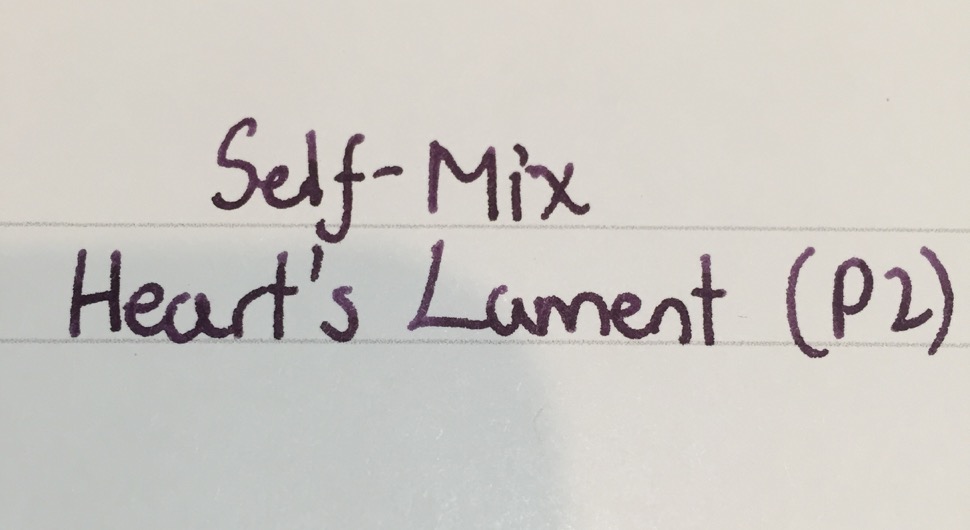 Self-Mix
Heart's Lament (P2)